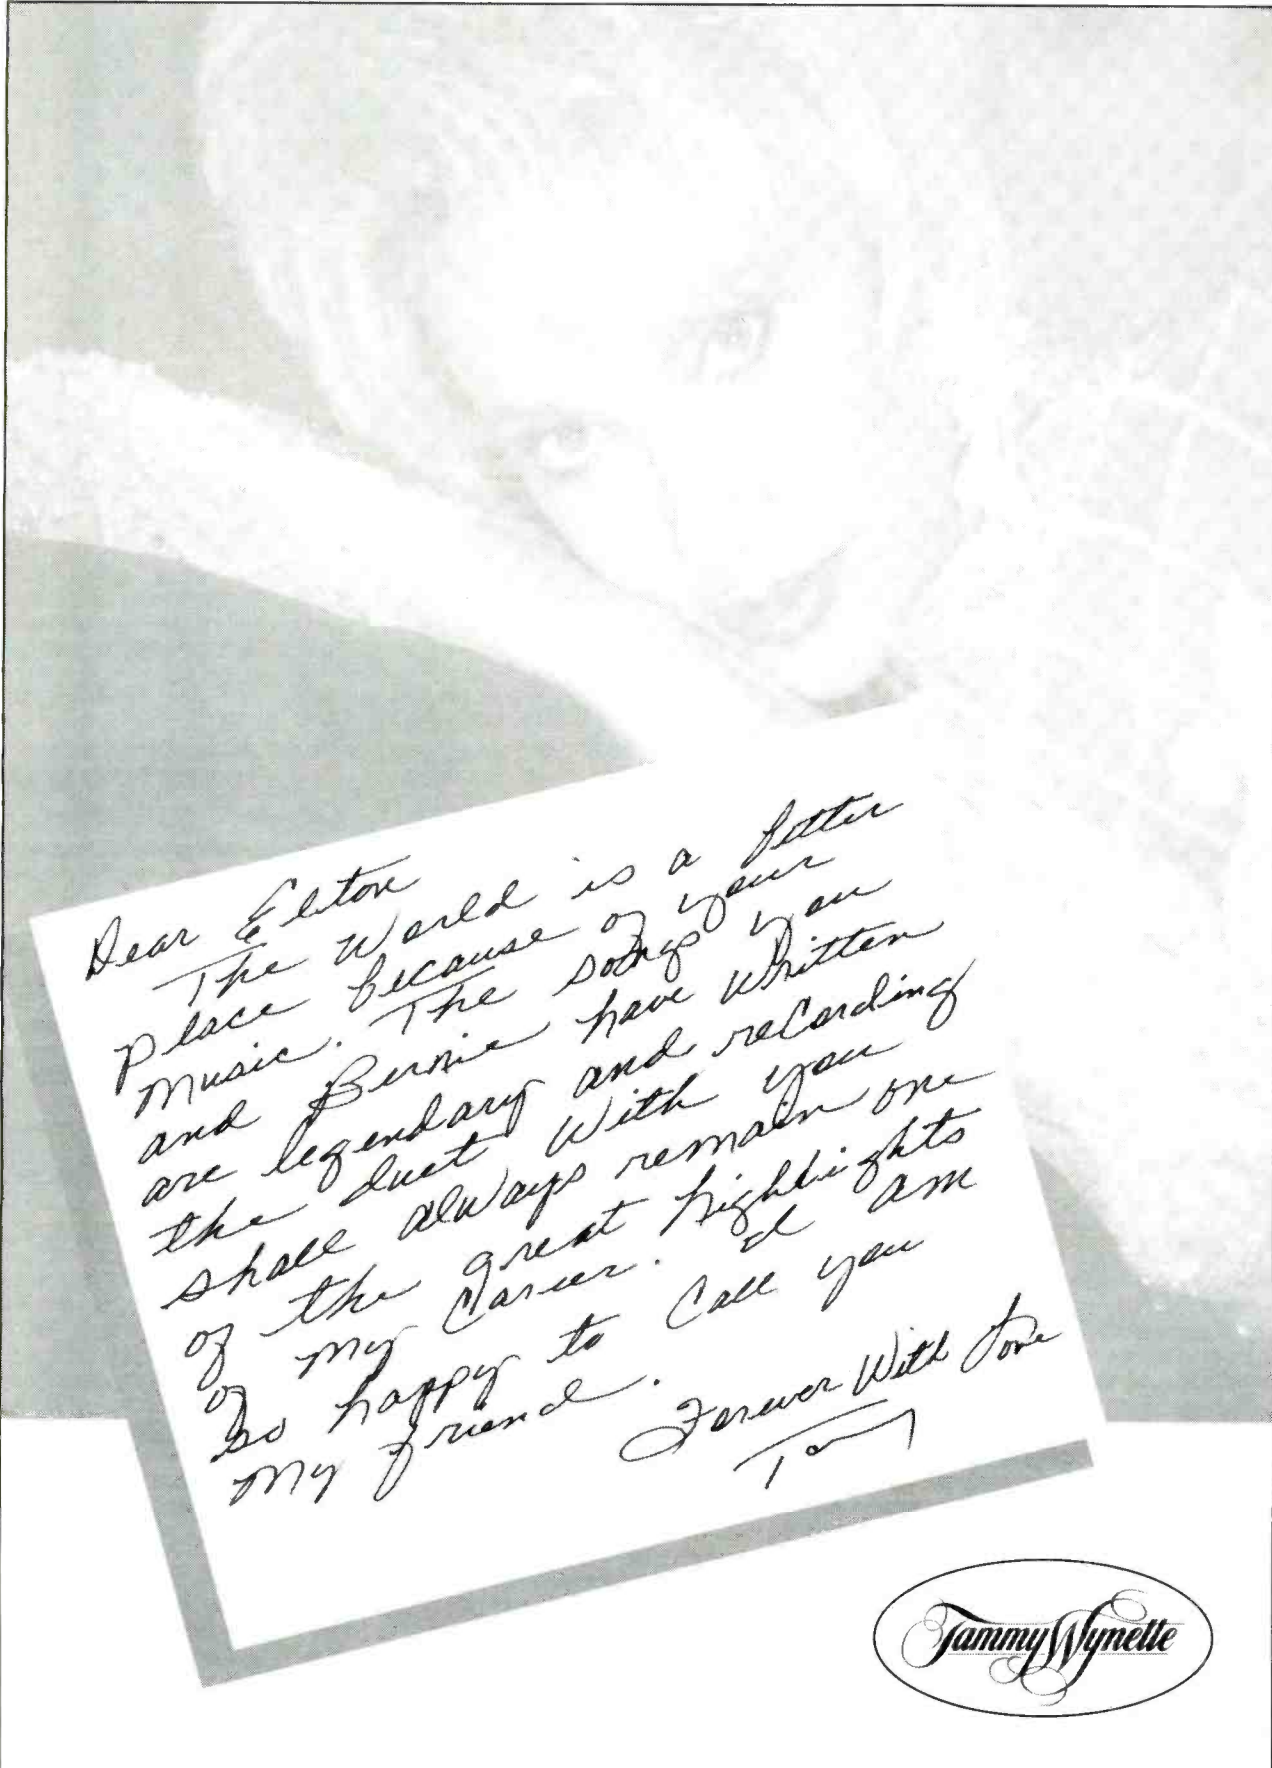 Dear Elton
The World is a better
place because of your
music. The songs you
and Bernie have written
are legendary and recording
the duet with you
shall always remain one
of the great highlights
of my Career. I am
so happy to Call you
My friend.
Forever With Love
Tammy
Tammy Wynette